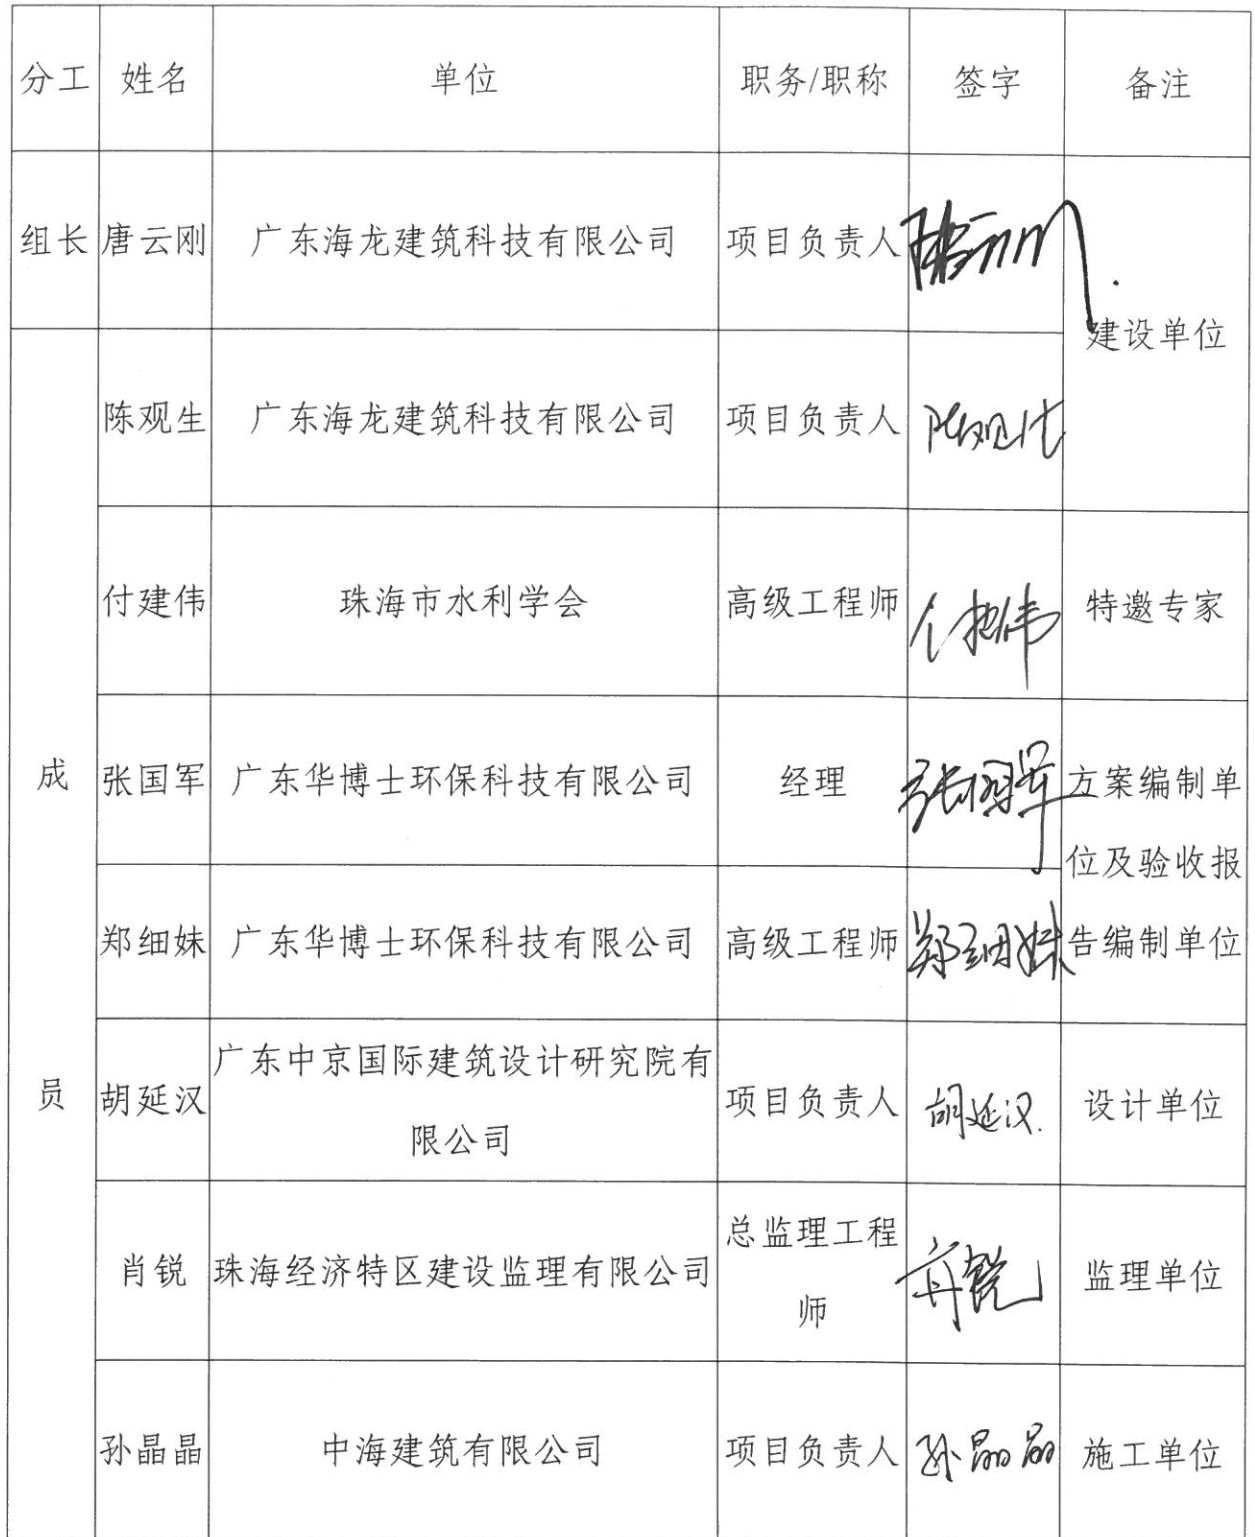 分工 姓名 单位 职务/职称 签字 备注
组长 唐云刚 广东海龙建筑科技有限公司 项目负责人 唐云刚
建设单位
陈观生 广东海龙建筑科技有限公司 项目负责人 陈观生
付建伟 珠海市水利学会 高级工程师 付建伟 特邀专家
成
张国军 广东华博士环保科技有限公司 经理 张国军 方案编制单
位及验收报
郑细妹 广东华博士环保科技有限公司 高级工程师 郑细妹 告编制单位
员
广东中京国际建筑设计研究院有
胡延汉 项目负责人 胡延汉. 设计单位
限公司
总监理工程
肖锐 珠海经济特区建设监理有限公司 肖锐 监理单位
师
孙晶晶 中海建筑有限公司 项目负责人 孙晶晶 施工单位